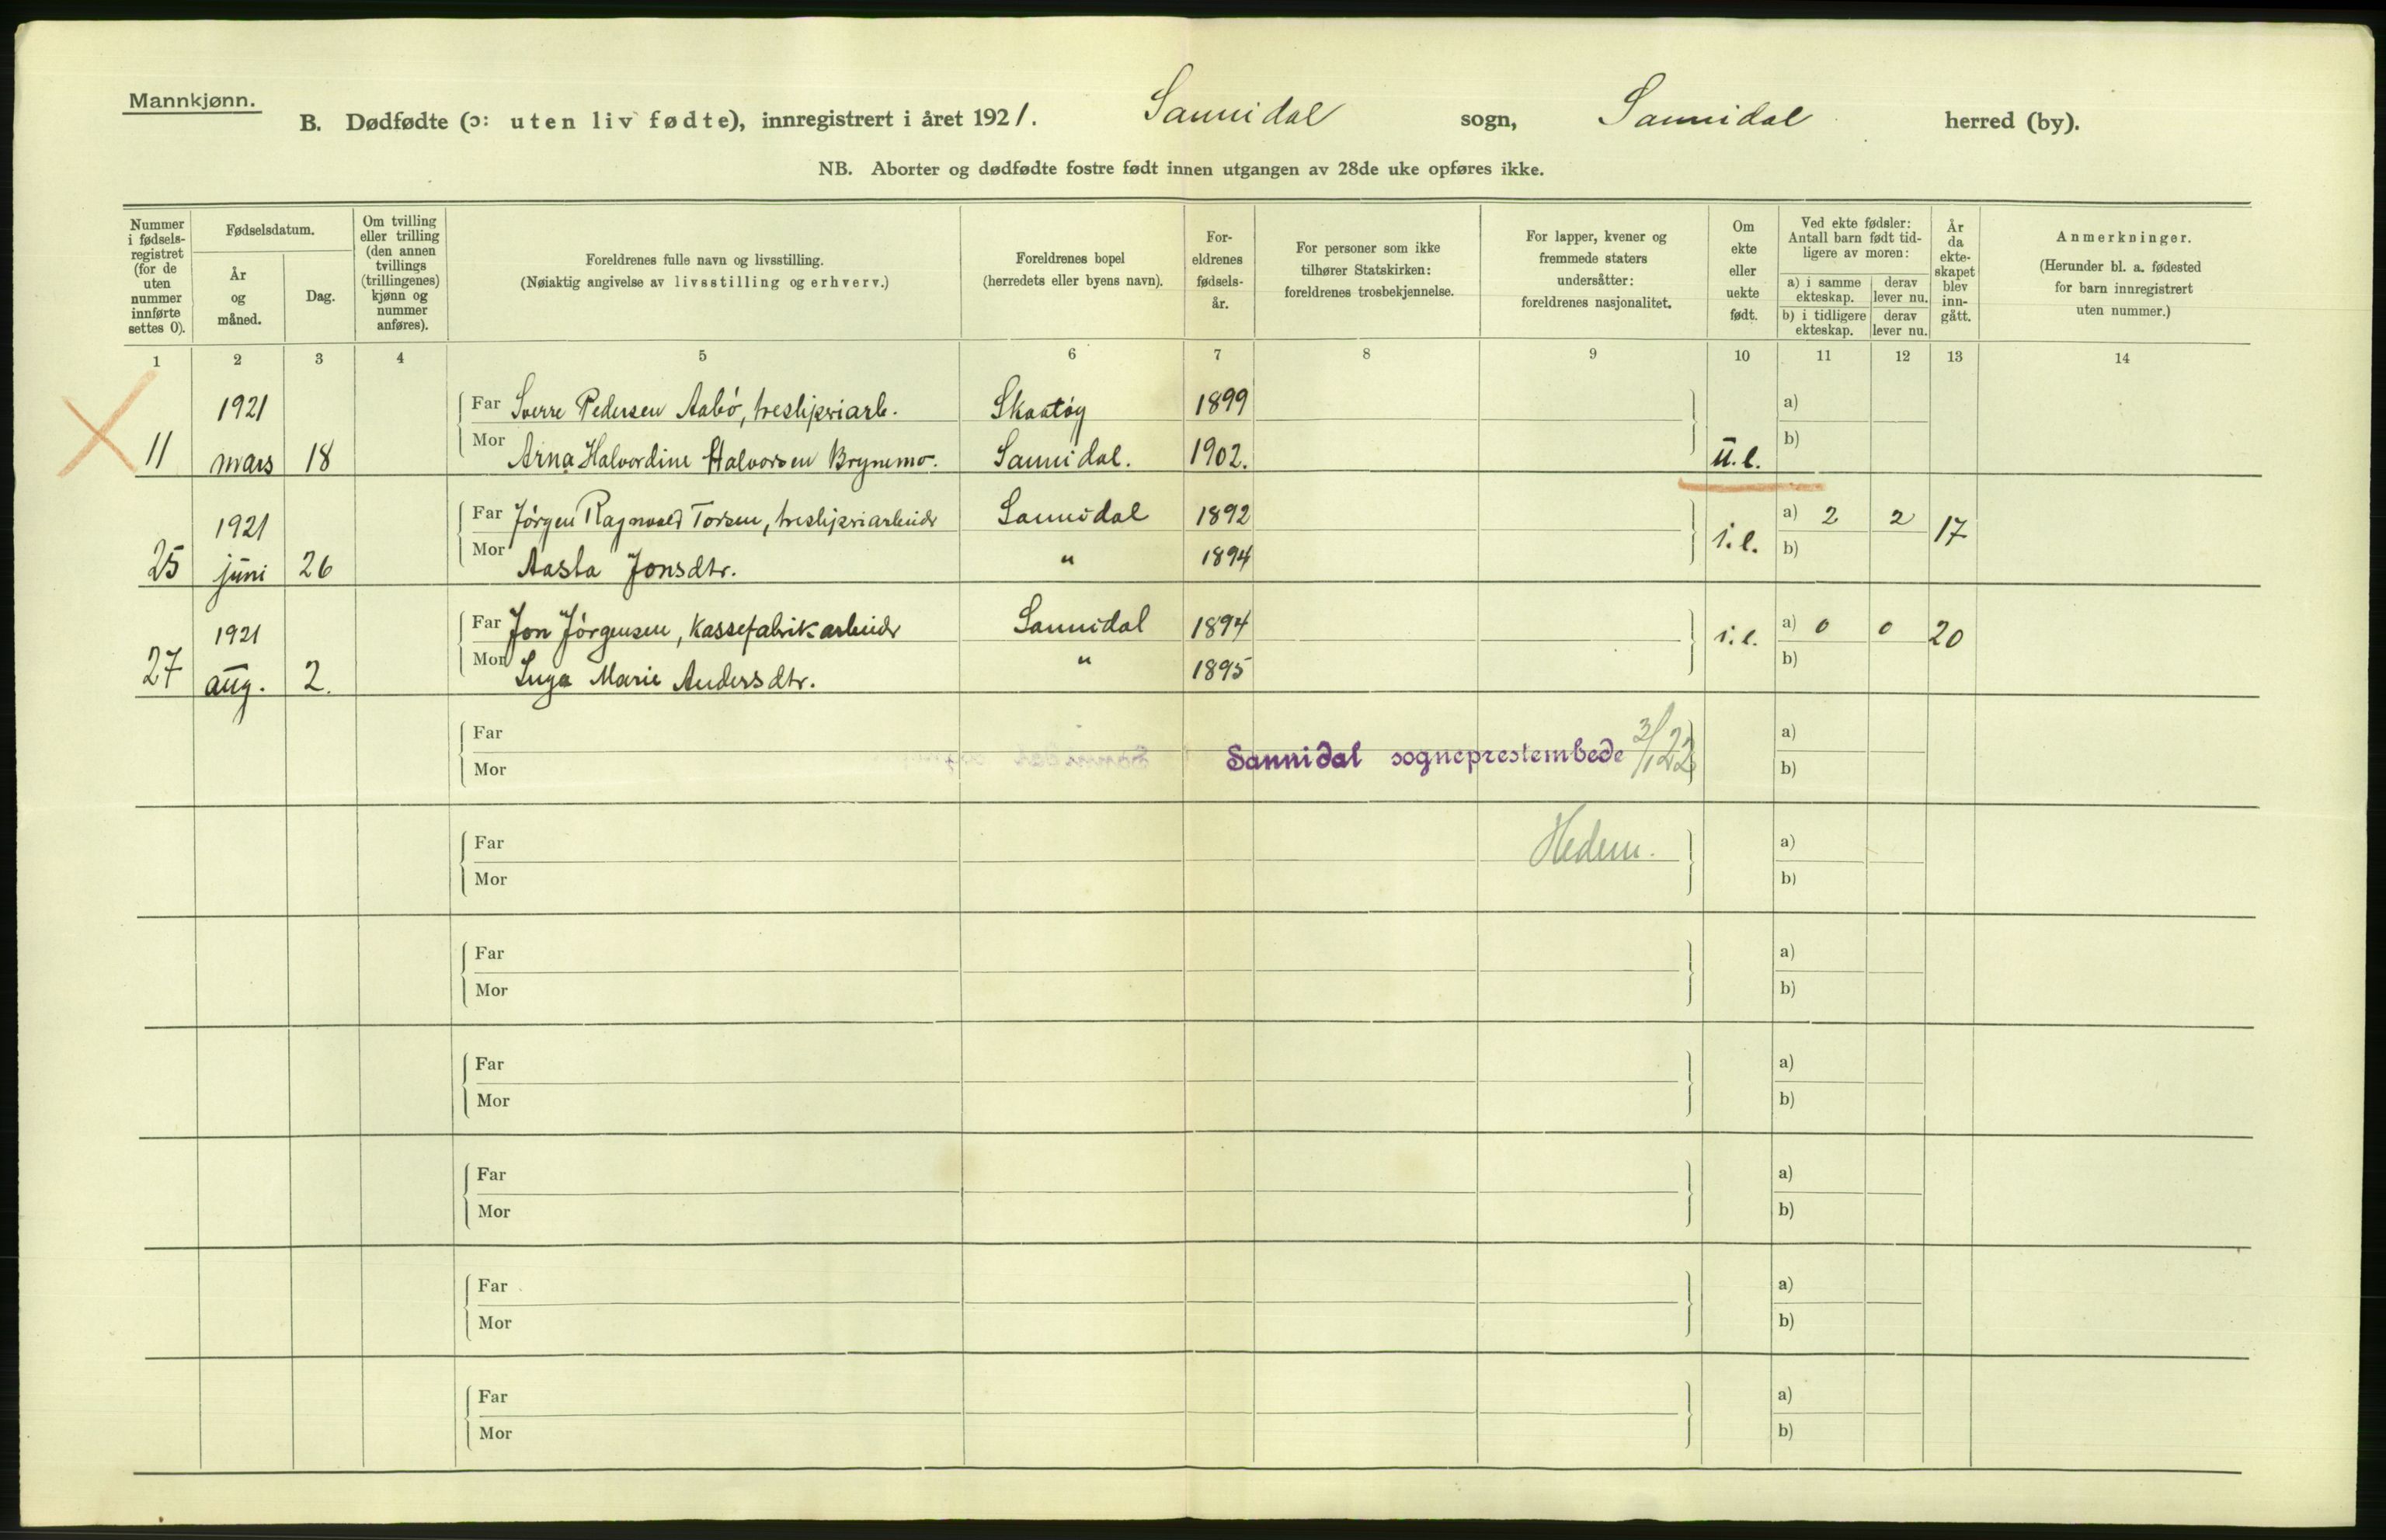 Mannkjønn.
B. Dødfødte (ɔ: uten liv fødte), innregistrert i året 1921. Sannidal sogn, Sannidal herred (by).
NB. Aborter og dødfødte fostre født innen utgangen av 28de uke opføres ikke.
Nummer i fødsels- registret (for de uten nummer innførte settes 0).
Fødselsdatum.
År og måned.
Dag.
Om tvilling eller trilling (den annen tvillings (trillingenes) kjønn og nummer anføres).
Foreldrenes fulle navn og livsstilling.
(Nøiaktig angivelse av livsstilling og erhverv.)
Foreldrenes bopel
(herredets eller byens navn).
For- eldrenes fødsels- år.
For personer som ikke tilhører Statskirken: foreldrenes trosbekjennelse.
For lapper, kvener og fremmede staters undersåtter: foreldrenes nasjonalitet.
Om ekte eller uekte født.
Ved ekte fødsler: Antall barn født tid- ligere av moren:
a) i samme ekteskap. derav lever nu.
b) i tidligere ekteskap. derav lever nu.
År da ekte- skapet blev inn- gått.
Anmerkninger.
(Herunder bl. a. fødested for barn innregistrert uten nummer.)
1 2 3 4 5 6 7 8 9 10 11 12 13 14
1921 Far Sverre Pedersen Aabö, tresliperiarb. Skaatöy 1899 a)
11 mars 18 Mor Arna Halvordine Halvorsen Brynemo. Sannidal. 1902. u.e. b)
1921 Far Jörgen Ragnvald Torsen, tresliperiarbeider Sannidal 1892 a) 2 2 17
25 juni 26 Mor Aasta Jonsdtr. " 1894 i.e. b)
1921 Far Jon Jörgensen, kassefabrikarbeider Sannidal 1894 i.e. a) 0 0 20
27 aug. 2. Mor Inga Marie Andersdtr. " 1895 b)
Far a)
Sannidal sogneprestembede 3/1 22
Mor b)
Far Hedem. a)
Mor b)
Far a)
Mor b)
Far a)
Mor b)
Far a)
Mor b)
Far a)
Mor b)
Far a)
Mor b)